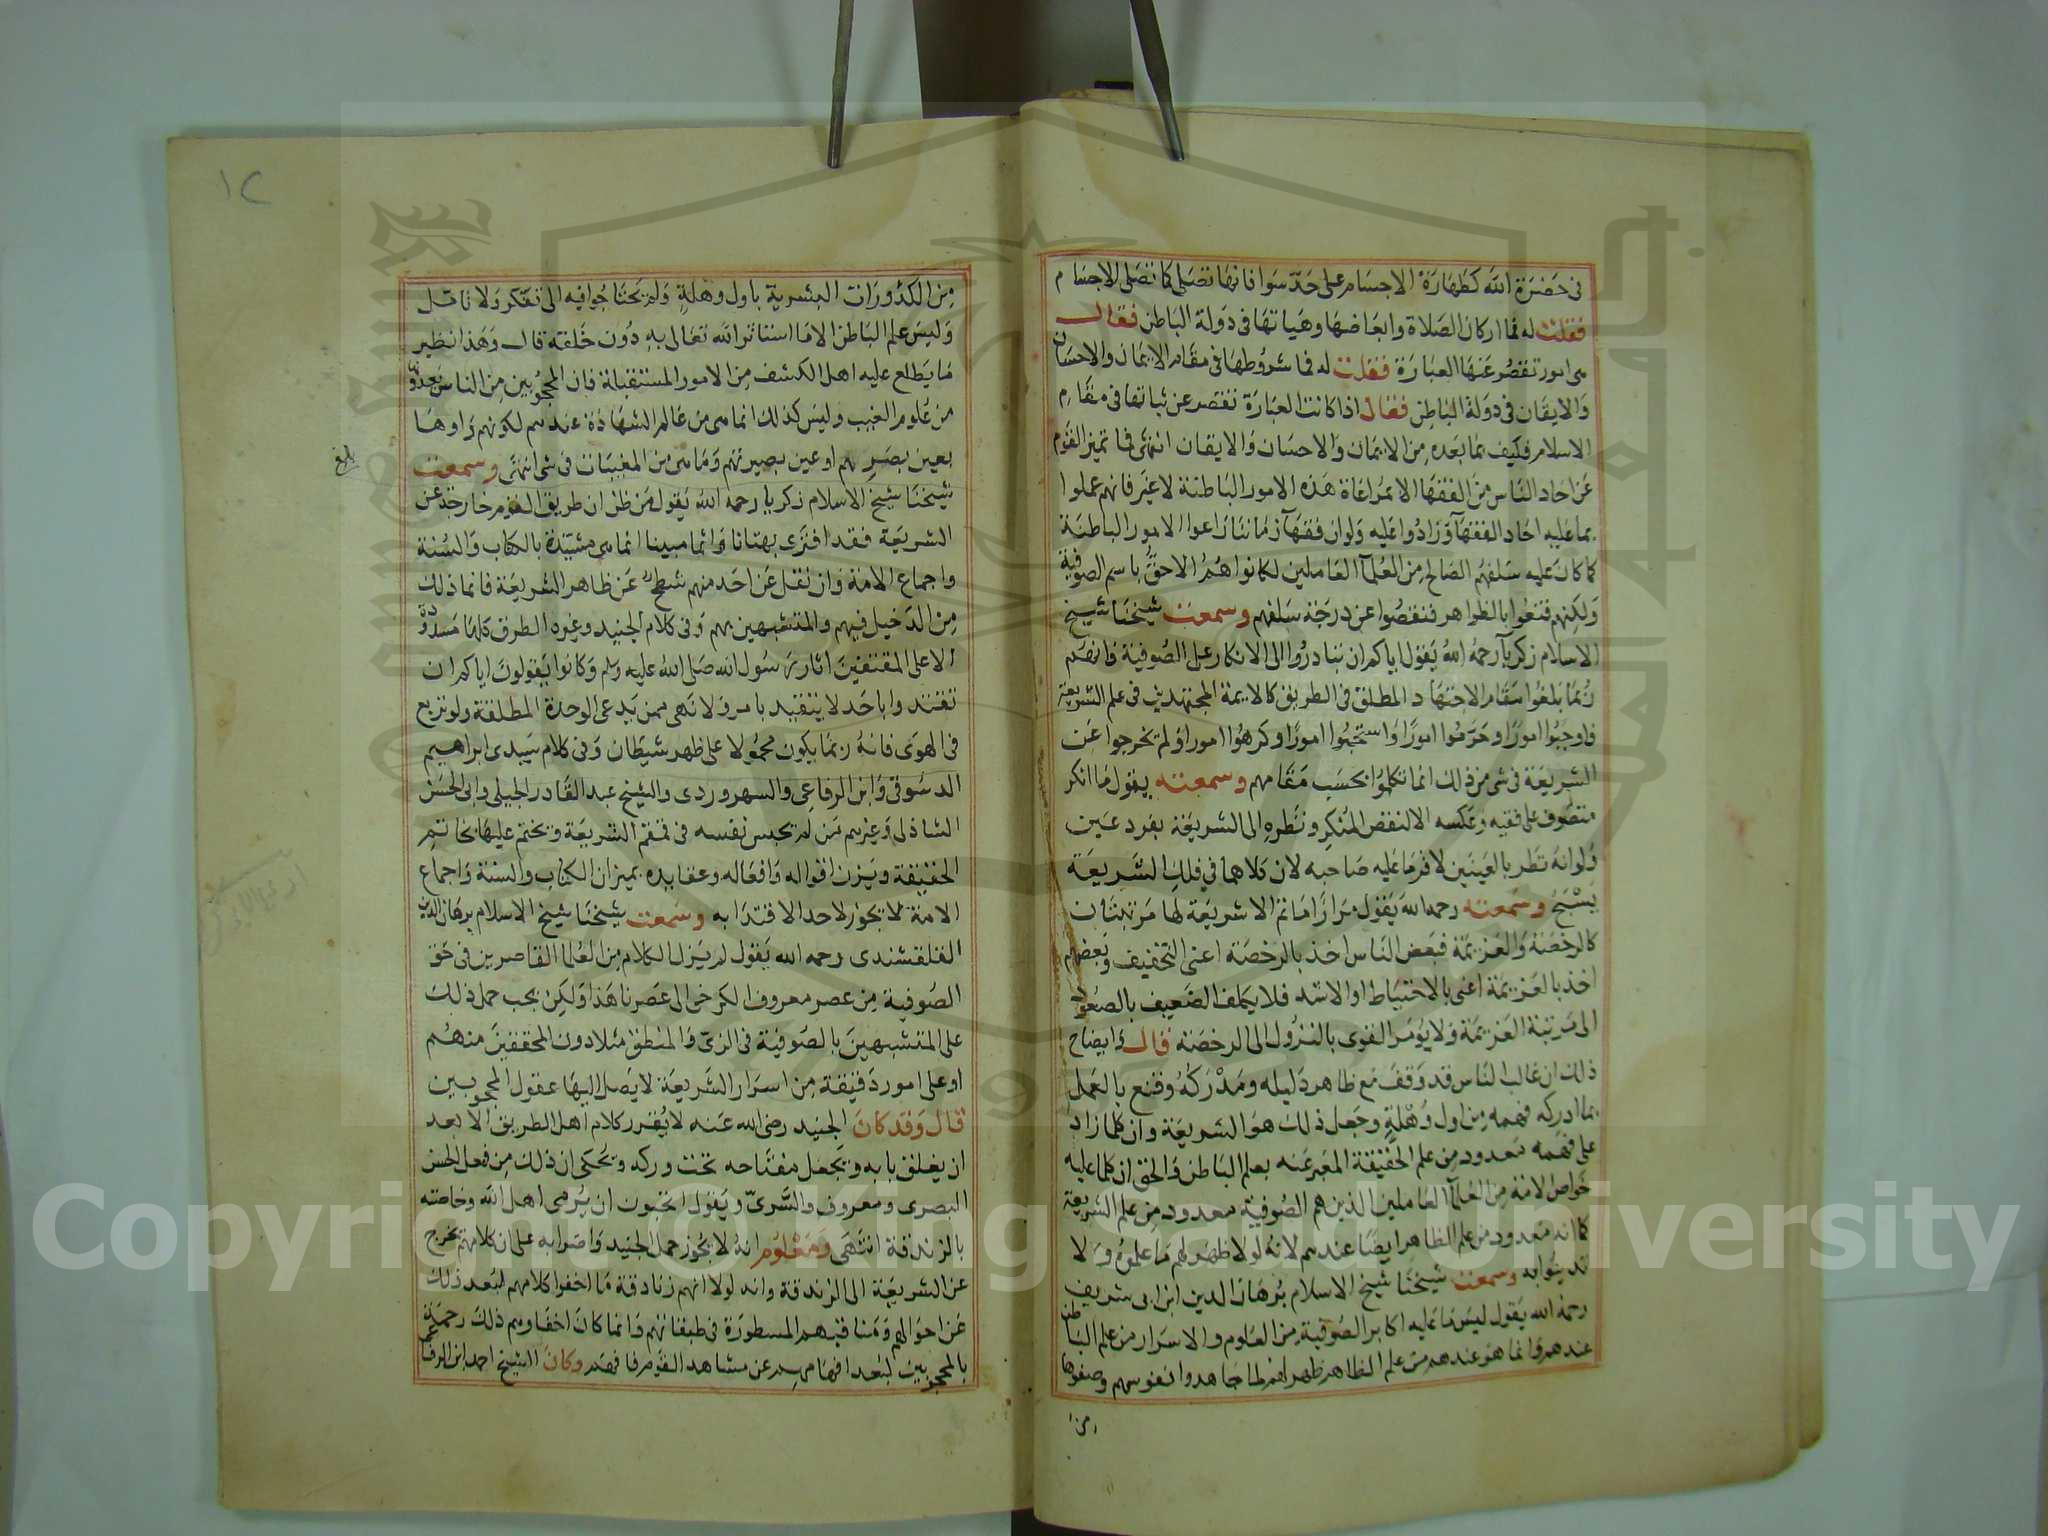 في حضرة الله كطهارة الاجسام على حد سوا فانها تصلى كما تصلى الاجسام
فقلت له فما اركان الصلاة وابعاضها وهياتها فى دولة الباطن فقال
هى امور تقصر عنها العبارة فقلت له فما شروطها فى مقام الايمان والاحسان
والايقان فى دولة الباطن فقال اذا كانت العبارة تقصر عن ثباتها فى مقام
الاسلام فكيف بما بعده من الايمان والاحسان والايقان انتهى فما تميز القوم
عن احاد الناس من الفقها الا بمراعاة هذه الامور الباطنة لا غير فانهم عملوا
بما عليه احاد الفقهآ وزادوا عليه ولو ان فقهآ زماننا راعوا الامور الباطنة
كما كان عليه سلفهم الصالح من العلمآ العاملين لكانوا هم الاحق باسم الصوفية
ولكنهم قنعوا بالظواهر فنقصوا عن درجة سلفهم وسمعت شيخنا شيخ
الاسلام زكريآ رحمه الله يقول اياكم ان تبادروا الى الانكار على الصوفية فانهم
ربما بلغوا مقام الاجتهاد المطلق فى الطريق كالايمة المجتهدين فى علم الشريعة
فاوجبوا امورا وحرموا امورا واستحبوا امورا وكرهوا امورا ولم يخرجوا عن
الشريعة فى شى من ذلك انما تكلموا بحسب مقامهم وسمعته يقول ما انكر
متصوف على فقيه وعكسه الا لنقص المنكر ونظره الى الشريعة بفرد عين
ولو انه نظر بالعينين لاقر ما عليه صاحبه لان كلاهما فى فلك الشريعة
يسبح وسمعته رحمه الله يقول مرارا ما ثم الا شريعة لها مرتبتان
كالرخصة والعزيمة فبعض الناس اخذ بالرخصة اعنى التخفيف وبعضهم
اخذ بالعزيمة اعنى بالاحتياط او الاشد فلا يكلف الضعيف بالصعود
الى مرتبة العزيمة ولا يومر القوى بالنزول الى الرخصة قال وايضاح
ذلك ان غالب الناس قد وقف مع ظاهر دليله ومدركه وقنع بالعمل
بما ادركه فهمه من اول وهلة وجعل ذلك هو الشريعة وان كلما زاد
على فهمه معدود من علم الحقيقة المعبر عنه بعلم الباطن والحق ان كلما عليه
خواص الامة من العلمآ العاملين الذين هم الصوفية معدود من علم الشريعة
كما انه معدود من علم الظاهر ايضا عندهم لانه لولا ظهر لهم ما علموه ولا
تدينوا به وسمعت شيخنا شيخ الاسلام برهان الدين ابن ابى شريف
رحمه الله يقول ليس ما عليه اكابر الصوفية من العلوم والاسرار من علم الباطن
عندهم وانما هو عندهم من علم الظاهر ظهر لهم لما جاهدوا نفوسهم وصفوها
من
١٢
من الكدورات البشرية باول وهلة ولم يحتاجوا فيه الى تفكر ولا تامل
وليس علم الباطن الا ما استاثر الله تعالى به دون خلقه قال وهذا نظير
ما يطلع عليه اهل الكشف من الامور المستقبلة فان المحجوبين من الناس يعدونه
من علوم الغيب وليس كذلك انما هى من عالم الشهادة عندهم لكونهم راوها
بعين بصرهم او عين بصيرتهم وما هى من المغيبات فى شى انتهى وسمعت
بلغ
شيخنا شيخ الاسلام زكريا رحمه الله يقول من ظن ان طريق القوم خارجة عن
الشريعة فقد افترى بهتانا واثما مبينا انما هى مشيدة بالكتاب والسنة
واجماع الامة وان نقل عن احد منهم شطح عن ظاهر الشريعة فانما ذلك
من الدخيل فيهم والمتشبهين بهم وفى كلام الجنيد وغيره الطرق كلها مسدودة
الا على المقتفين اثار رسول الله صلى الله عليه وسلم وكانوا يقولون اياكم ان
تقتدوا باحد لا يتقيد بامر ولا نهى ممن يدعى الوحدة المطلقة ولو تربع
فى الهوى فانه ربما يكون محمولا على ظهر شيطان وفى كلام سيدى ابراهيم
الدسوقى وابن الرفاعى والسهروردى والشيخ عبد القادر الجيلى وابى الحسن
الشاذلى وغيرهم من لم يحبس نفسه فى قمقم الشريعة ويختم عليها بخاتم
الحقيقة ويزن اقواله وافعاله وعقايده بميزان الكتاب والسنة واجماع
الامة لا يجوز لاحد الاقتدا به وسمعت شيخنا شيخ الاسلام برهان الدين
القلقشندى رحمه الله يقول لم يزل الكلام من العلما القاصرين فى حق
الصوفية من عصر معروف الكرخى الى عصرنا هذا ولكن يجب حمل ذلك
على المتشبهين بالصوفية فى الزى والمنطق مثلا دون المحققين منهم
او على امور دقيقة من اسرار الشريعة لا يصل اليها عقول المحجوبين
قال وقد كان الجنيد رضى الله عنه لا يقرر كلام اهل الطريق الا بعد
ان يغلق بابه ويجعل مفتاحه تحت وركه ويحكى ان ذلك من فعل الحسن
البصرى ومعروف والسرى ويقول اتحبون ان يرمى اهل الله وخاصته
بالزندقة انتهى ومعلوم انه لا يجوز حمل الجنيد واضرابه على ان كلامهم يخرج
عن الشريعة الى الزندقة وانه لولا انهم زنادقة ما اخفوا كلامهم لبعد ذلك
عن احوالهم ومناقبهم المسطورة فى طبقاتهم وانما كان اخفاوهم ذلك رحمة
بالمحجوبين لبعد افهامهم عن مشاهد القوم فافهم وكان الشيخ احمد ابن الرفاعى